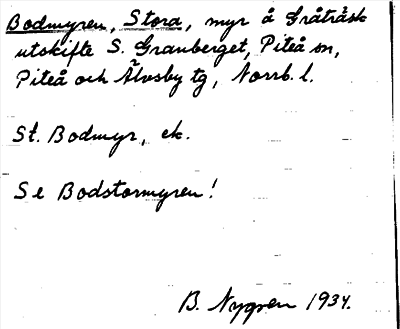 Bodmyren, Stora, myr å Gråträsk
utskifte S. Granberget, Piteå sn,
Piteå och Älvsby tg, Norrb. l.
St. Bodmyr, ek.
Se Bodstormyren!
B. Nygren 1934.